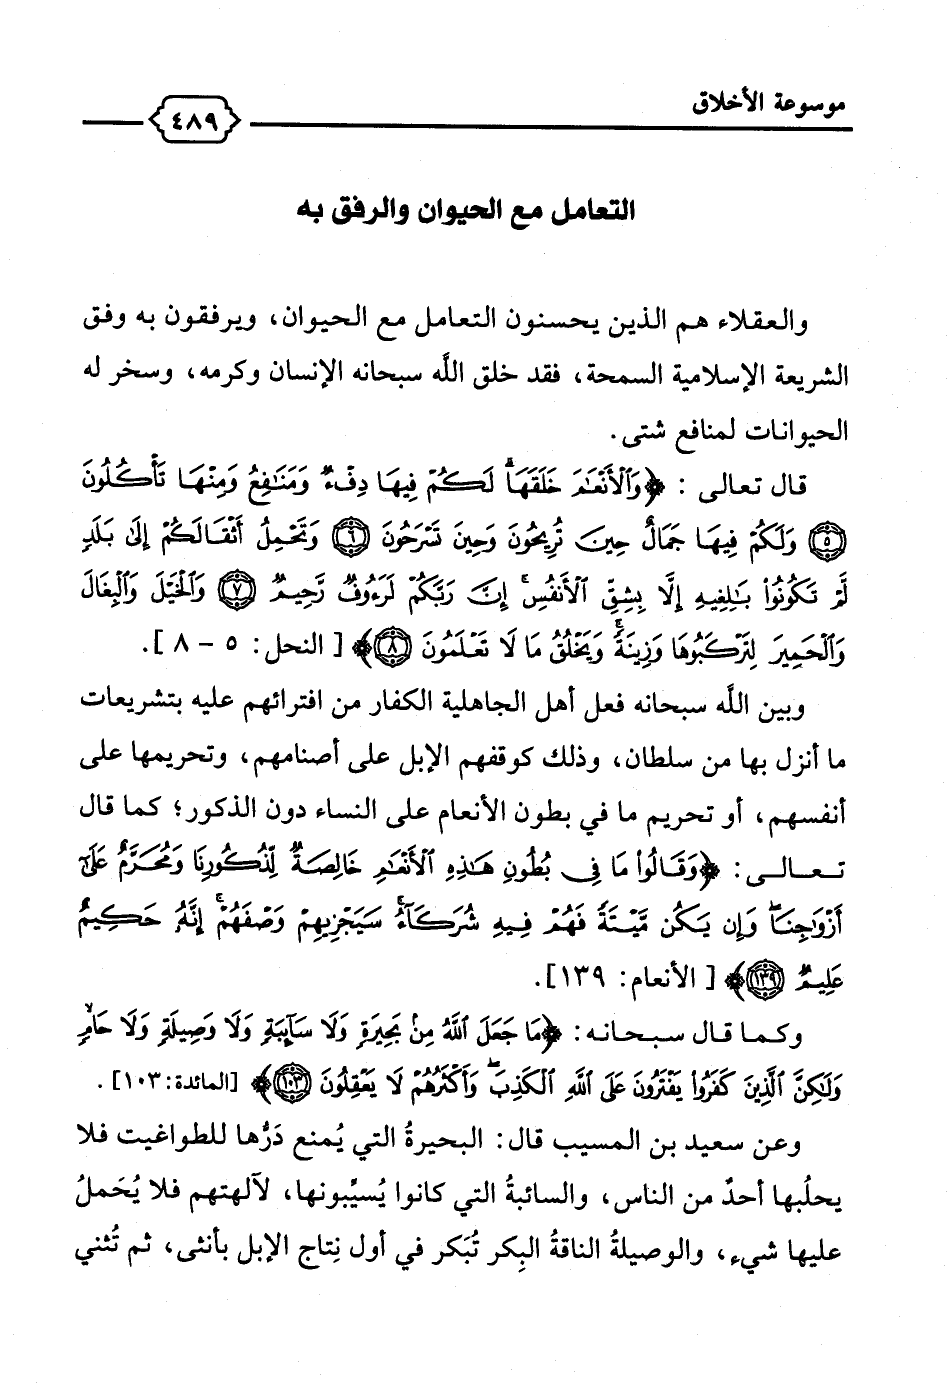 موسوعة الأخلاق
٤٨٩
التعامل مع الحيوان والرفق به
والعقلاء هم الذين يحسنون التعامل مع الحيوان، ويرفقون به وفق
الشريعة الإسلامية السمحة، فقد خلق اللَّه سبحانه الإنسان وكرمه، وسخر له
الحيوانات لمنافع شتى.
قال تعالى : ﴿وَٱلْأَنْعَٰمَ خَلَقَهَاۗ لَكُمْ فِيهَا دِفْءٌ وَمَنَٰفِعُ وَمِنْهَا تَأْكُلُونَ
۝٥ وَلَكُمْ فِيهَا جَمَالٌ حِينَ تُرِيحُونَ وَحِينَ تَسْرَحُونَ ۝٦ وَتَحْمِلُ أَثْقَالَكُمْ إِلَىٰ بَلَدٍ
لَّمْ تَكُونُوا۟ بَٰلِغِيهِ إِلَّا بِشِقِّ ٱلْأَنفُسِۚ إِنَّ رَبَّكُمْ لَرَءُوفٌ رَّحِيمٌ ۝٧ وَٱلْخَيْلَ وَٱلْبِغَالَ
وَٱلْحَمِيرَ لِتَرْكَبُوهَا وَزِينَةًۚ وَيَخْلُقُ مَا لَا تَعْلَمُونَ ۝٨﴾ [ النحل: ٥ - ٨ ].
وبين اللَّه سبحانه فعل أهل الجاهلية الكفار من افترائهم عليه بتشريعات
ما أنزل بها من سلطان، وذلك كوقفهم الإبل على أصنامهم، وتحريمها على
أنفسهم، أو تحريم ما في بطون الأنعام على النساء دون الذكور؛ كما قال
تعالى: ﴿وَقَالُوا۟ مَا فِى بُطُونِ هَٰذِهِ ٱلْأَنْعَٰمِ خَالِصَةٌ لِّذُكُورِنَا وَمُحَرَّمٌ عَلَىٰٓ
أَزْوَٰجِنَاۖ وَإِن يَكُن مَّيْتَةً فَهُمْ فِيهِ شُرَكَآءُۚ سَيَجْزِيهِمْ وَصْفَهُمْۚ إِنَّهُۥ حَكِيمٌ
عَلِيمٌ ۝١٣٩﴾ [ الأنعام: ١٣٩ ].
وكما قال سبحانه: ﴿مَا جَعَلَ ٱللَّهُ مِنۢ بَحِيرَةٍ وَلَا سَآئِبَةٍ وَلَا وَصِيلَةٍ وَلَا حَامٍۙ
وَلَٰكِنَّ ٱلَّذِينَ كَفَرُوا۟ يَفْتَرُونَ عَلَى ٱللَّهِ ٱلْكَذِبَۖ وَأَكْثَرُهُمْ لَا يَعْقِلُونَ ۝١٠٣﴾ [المائدة: ١٠٣] .
وعن سعيد بن المسيب قال: البحيرةُ التي يُمنع دَرُّها للطواغيت فلا
يحلُبها أحدٌ من الناس، والسائبةُ التي كانوا يُسيِّبونها، لآلهتهم فلا يُحَملُ
عليها شيء، والوصيلةُ الناقةُ البِكر تُبَكر في أول نِتاج الإبل بأنثى، ثم تُثني